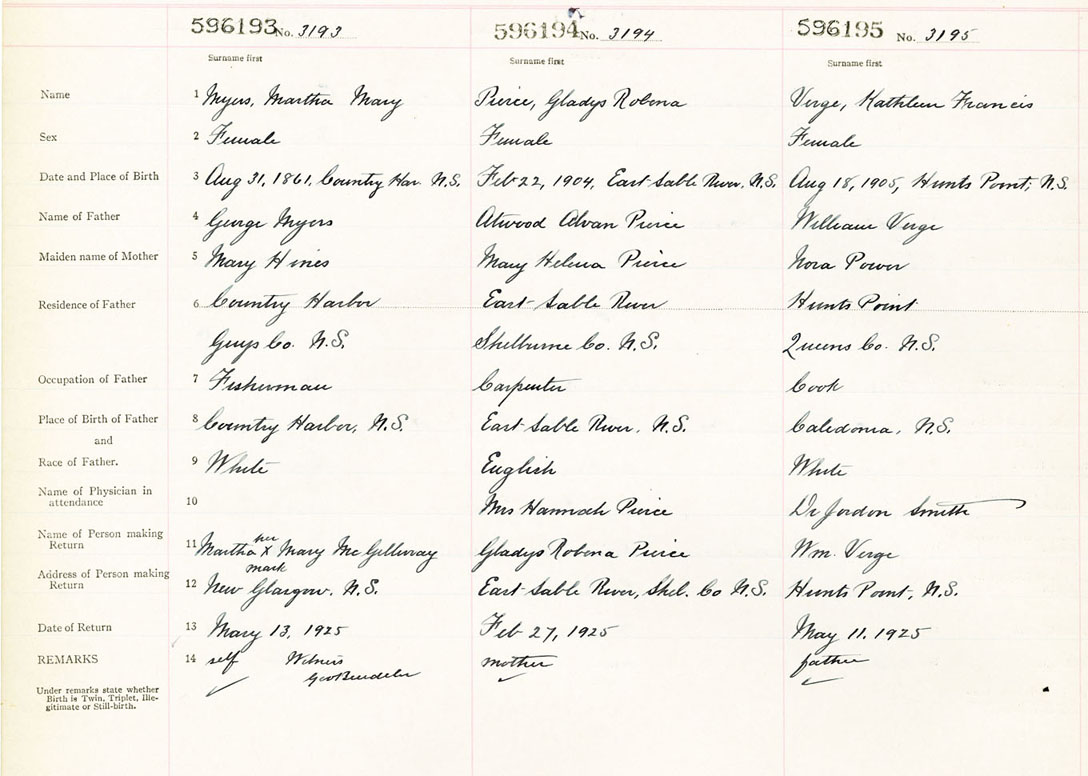 596193 No. 3193 596194 No. 3194 596195 No. 3195
Surname first Surname first Surname first
Name 1 Myers, Martha Mary Pierce, Gladys Robena Verge, Kathleen Francis
Sex 2 Female Female Female
Date and Place of Birth 3 Aug 31, 1861, Country Har N.S. Feb 22, 1904, East Sable River, N.S. Aug 18, 1905, Hunts Point, N.S.
Name of Father 4 George Myers Atwood Alvan Pierce William Verge
Maiden name of Mother 5 Mary Hines Mary Helena Pierce Nora Power
Residence of Father 6 Country Harbor East Sable River Hunts Point
Guys Co. N.S. Shelburne Co. N.S. Queens Co. N.S.
Occupation of Father 7 Fisherman Carpenter Cook
Place of Birth of Father 8 Country Harbor, N.S. East Sable River, N.S. Caledonia, N.S.
and
Race of Father. 9 White English White
Name of Physician in
attendance 10 Mrs Hannah Pierce Dr Jordon Smith
Name of Person making
Return 11 Martha her X mark Mary McGillivray Gladys Robena Pierce Wm. Verge
Address of Person making
Return 12 New Glasgow. N.S. East Sable River, Shel. Co N.S. Hunts Point, N.S.
Date of Return 13 Mary 13, 1925 Feb 27, 1925 May 11. 1925
REMARKS 14 self Witness mother father
Under remarks state whether
Birth is Twin, Triplet, Ille-
gitimate or Still-birth.